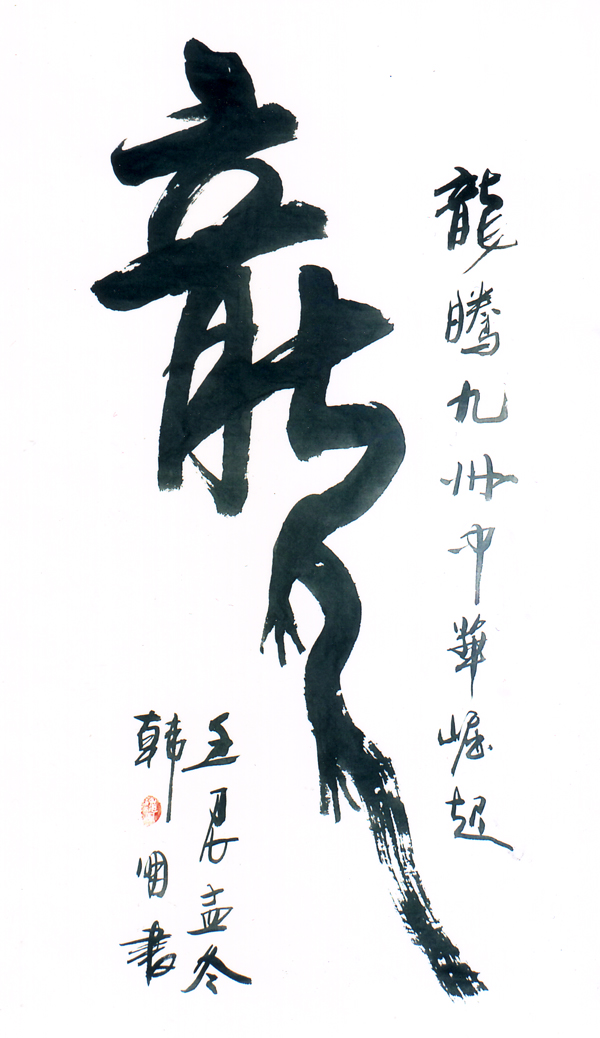 龍騰九州中華崛起
龍
壬辰孟冬
韩書